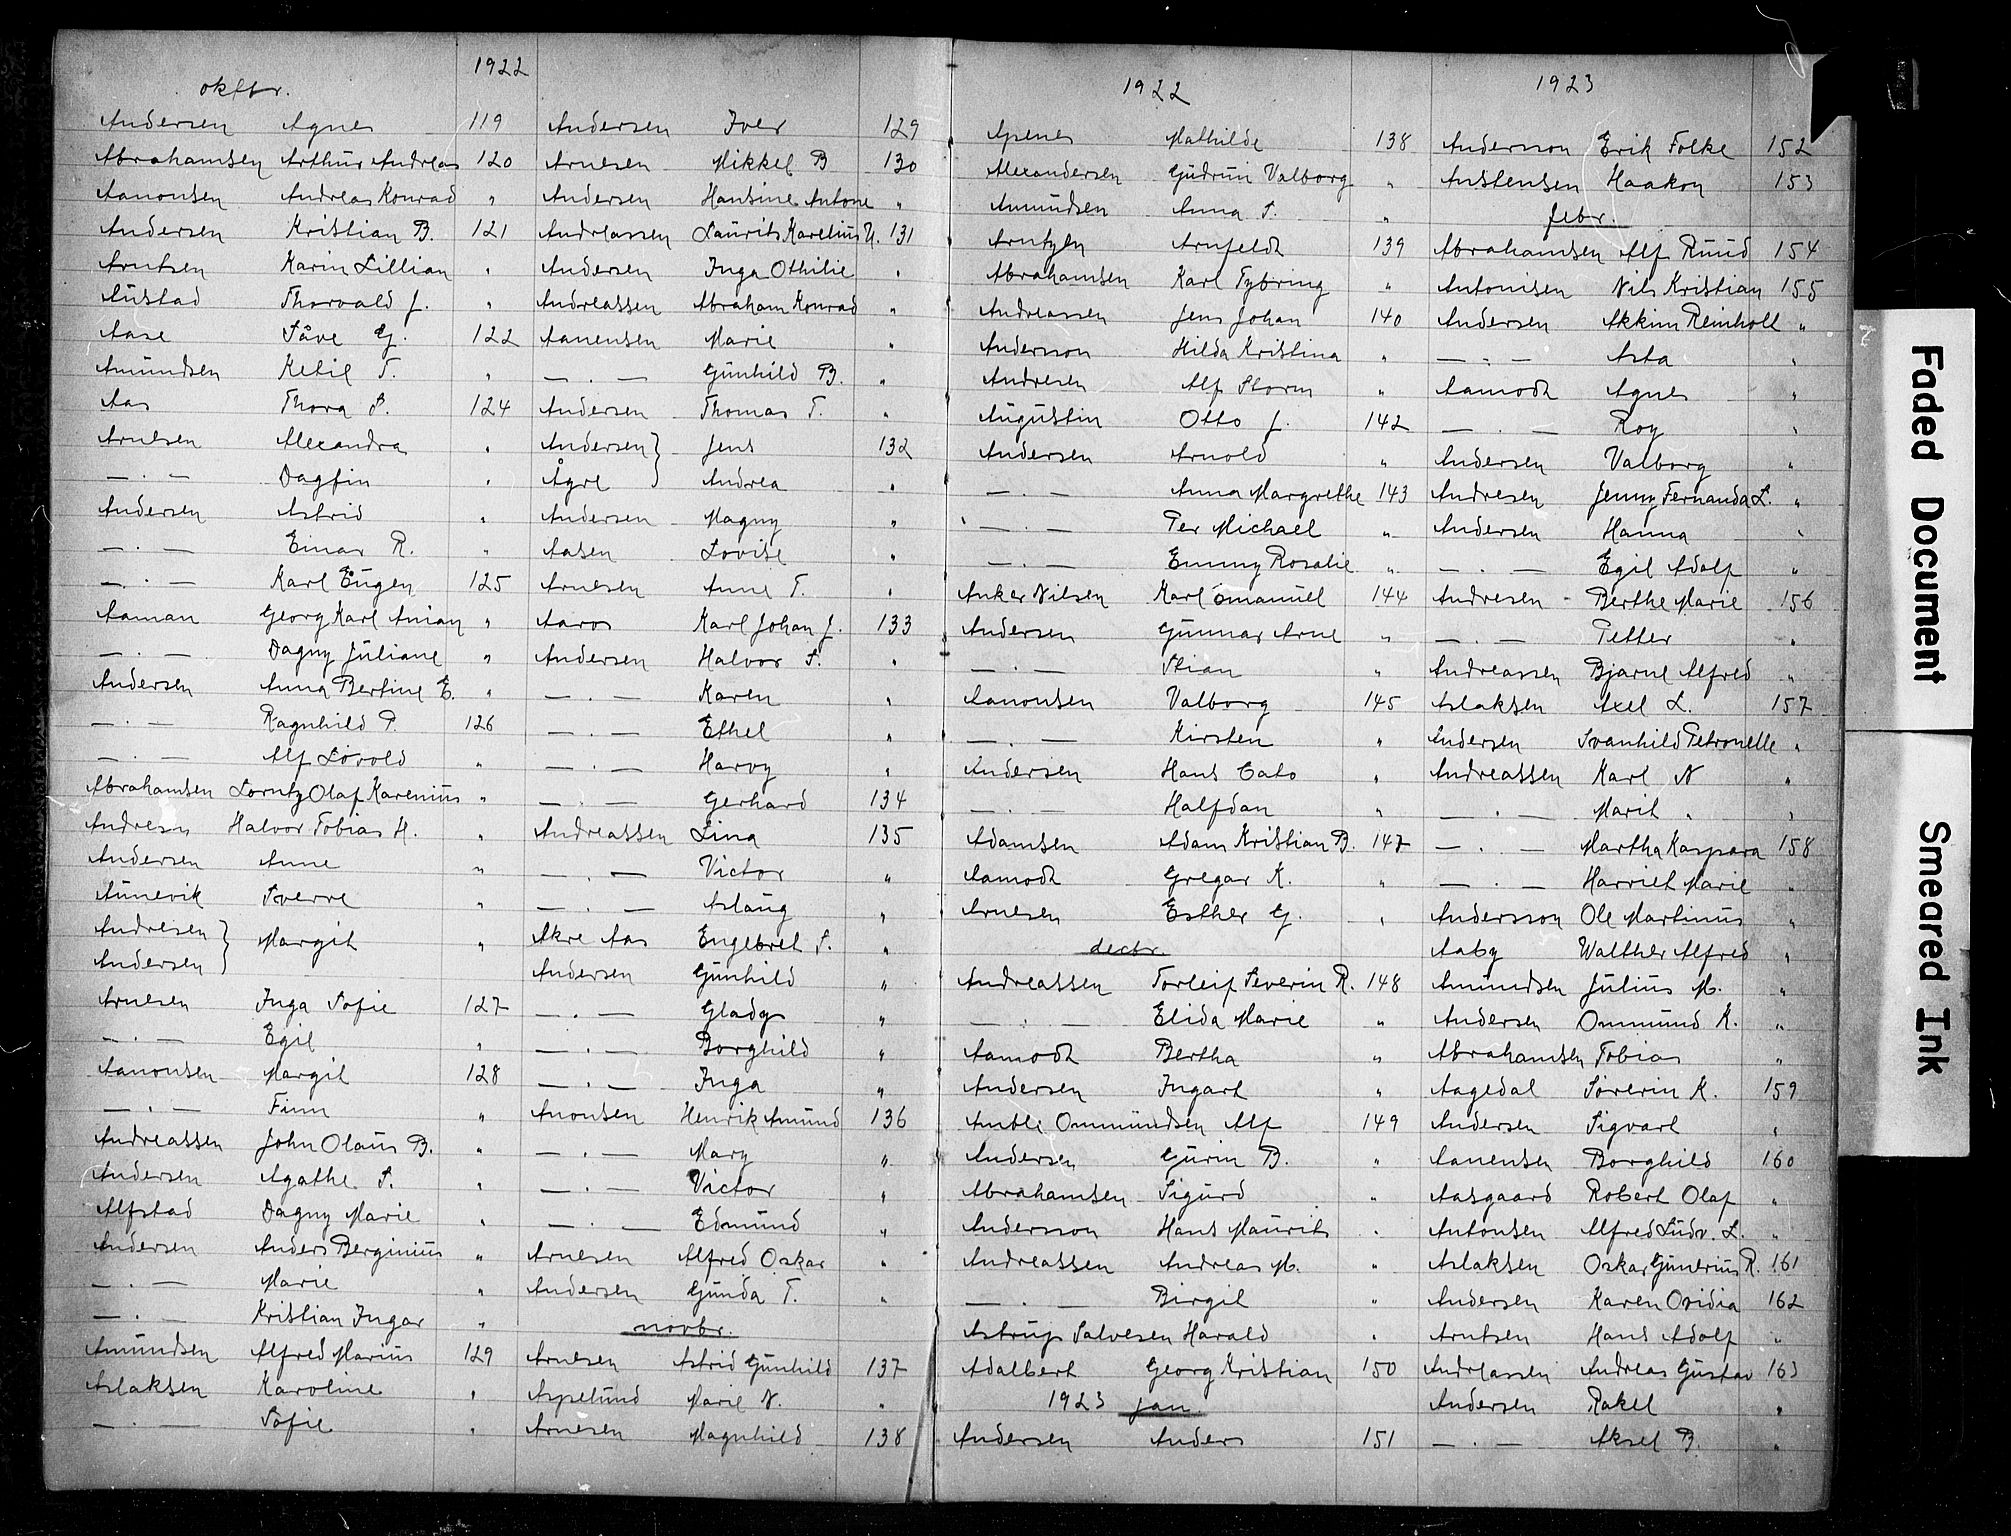 1922
oktbr.
Andersen Agnes 119
Abrahamsen Arthur Andreas 120
Aanonsen Andreas Konrad "
Andersen Kristian B. 121
Arntsen Karin Lillian "
Austad Thorvald J. "
Aase Tåve G. 122
Amundsen Ketil T. "
Aas Thora S. 124
Arnesen Alexandra "
— . — Dagfin "
Andersen Astrid "
— . — Einar R. "
— . — Karl Eugen 125
Aaman Georg Karl Anian "
— . — Dagny Juliane "
Andersen Anna Bertine E. "
— . — Ragnhild P. 126
— . — Alf Løvold "
Abrahamsen Lorntz Olaf Karenius "
Andresen Halvor Tobias H. "
Andersen Anne "
Aunevik Sverre "
Andresen } Margit "
Andersen }
Arnesen Inga Sofie 127
— . — Egil "
Aanonsen Margit 128
— . — Finn "
Andreassen John Olaus B. "
Andersen Agathe S. "
Alfstad Dagny Marie "
Andersen Anders Berginius "
— . — Marie "
— . — Kristian Ingar "
Amundsen Alfred Marius 129
Aslaksen Karoline "
— . — Sofie "
Andersen Iver 129
Arnesen Mikkel B 130
Andersen Hansine Antone "
Andreassen Laurits Karelius N. 131
Andersen Inga Othilie "
Andreassen Abraham Konrad "
Aanensen Marie "
— . — Gunhild B. "
Andersen Thomas T. "
Andersen } Jens 132
Ågre } Andrea "
Andersen Magny "
Aasen Lovise "
Arnesen Anne T. "
Aaros Karl Johan J. 133
Andersen Halvor S. "
— . — Karen "
— . — Ethel "
— . — Harry "
— . — Gerhard 134
Andreassen Lina 135
— . — Victor "
— . — Aslaug "
Akre Aas Engebret S. "
Andersen Gunhild "
— . — Gladys "
— . — Borghild "
— . — Inga "
Anonsen Henrik Amund 136
— . — Mary "
— . — Victor "
— . — Edmund "
Arnesen Alfred Oskar "
Andersen Gunda T. "
novbr.
Arnesen Astrid Gunhild 137
Aspelund Marie N. "
Arnesen Magnhild 138
1922
Apenes Mathilde 138
Alexandersen Gudrun Valborg "
Amundsen Anna S. "
Arntzen Arnfeldt 139
Abrahamsen Karl Tybring "
Andreassen Jens Johan 140
Andersson Hilda Kristina "
Andresen Alf Storm "
Augustin Otto J. 142
Andersen Arnold "
— . — Anna Margrethe 143
— . — Per Michael "
— . — Emmy Rosalie "
Anker Nilsen Karl Emanuel 144
Andersen Gunnar Arne "
— . — Stian "
Aanonsen Valborg 145
— . — Kirsten "
Andersen Hans Cato "
— . — Halfdan "
Adamsen Adam Kristian B. 147
Aamodt Gregar K. "
Arnesen Esther G. "
decbr.
Andreassen Torleif Severin R. 148
— . — Elida Marie "
Aamodt Bertha "
Andersen Ingart "
Amble Ommundsen Alf 149
Andersen Gurin B. "
Abrahamsen Sigurd "
Andersson Hans Maurits "
Andreassen Andreas M. "
— . — Birgit "
Astrup Salvesen Harald "
Adalbert Georg Kristian 150
1923 jan.
Andersen Anders 151
1923
Andersson Erik Folke 152
Anstensen Haakon 153
febr.
Abrahamsen Alf Ruud 154
Antonisen Nils Kristian 155
Andersen Akkim Reinholt "
— " — Asta "
Aamodt Agnes "
— . — Roy "
Andersen Valborg "
Andresen Jenny Fernanda L. "
Andersen Hanna "
— . — Egil Adolf "
Andresen Berthe Marie 156
— . — Petter "
Andreassen Bjarne Alfred "
Aslaksen Axel L. 157
Andersen Svanhild Petronelle "
Andreassen Karl N "
— . — Marit "
— . — Martha Kaspara 158
— . — Harriet Marie "
Andersson Ole Martinus "
Aaby Walther Alfred "
Amundsen Julius M. "
Andersen Ommund K. "
Abrahamsen Tobias "
Aagedal Søverin K. 159
Andersen Sigvart "
Aanensen Borghild 160
Aasgaard Robert Olaf "
Antonsen Alfred Ludv. L. "
Aslaksen Oskar Gunerius R. 161
Andersen Karen Ovidia 162
Arntsen Hans Adolf "
Andreassen Andreas Gustav 163
Andersen Rakel "
— . — Aksel B. "
Faded Document
Smeared Ink